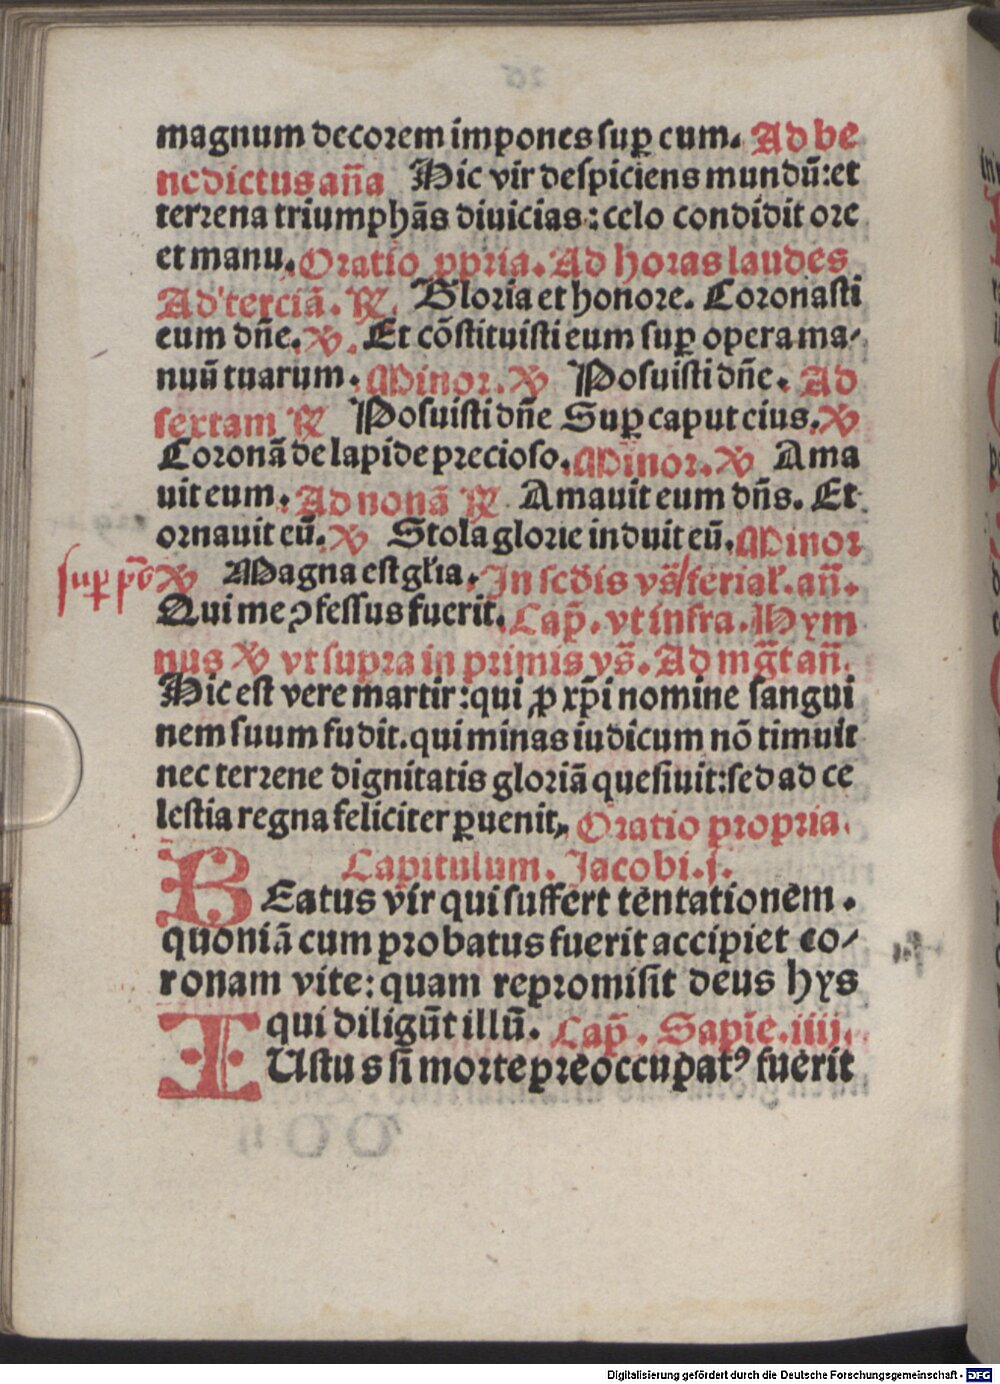 magnum decorem impones suꝑ eum. Ad be
nedictus an̄a Hic vir despiciens mundū: et
terrena triumphās diuicias: celo condidit ore
et manu. Oratio ꝓpria. Ad horas laudes
Ad terciā. ℟. Gloria et honore. Coronasti
eum dn̄e. ℣. Et cōstituisti eum suꝑ opera ma-
nuū tuarum. Minor. ℣ Posuisti dn̄e. Ad
sextam ℟ Posuisti dn̄e Suꝑ caput eius. ℣
Coronā de lapide precioso. Minor. ℣ Ama
uit eum. Ad nonā ℟ Amauit eum dn̄s. Et
ornauit eū. ℣ Stola glorie induit eū. Minor
℣ Magna est gl̄ia. In sc̄dis vs̄ ferial̄. an̄.
Qui me ꝯfessus fuerit. Cap̄. vt infra. Hym
nus ℣ vt supra in primis vs̄. Ad mg̅t an̄.
Hic est vere martir: qui ꝓ xp̄i nomine sangui
nem suum fudit. qui minas iudicum nō timuit
nec terrene dignitatis gloriā quesiuit: sed ad ce
lestia regna feliciter ꝑuenit. Oratio propria.
Capitulum. Jacobi. j.
BEatus vir qui suffert tentationem.
quoniā cum probatus fuerit accipiet co-
ronam vite: quam repromisit deus hys
qui diligūt illū. Cap̄. Sapīe. iiij.
IUstus si morte preoccupatꝰ fuerit
Digitalisierung gefördert durch die Deutsche Forschungsgemeinschaft - DFG